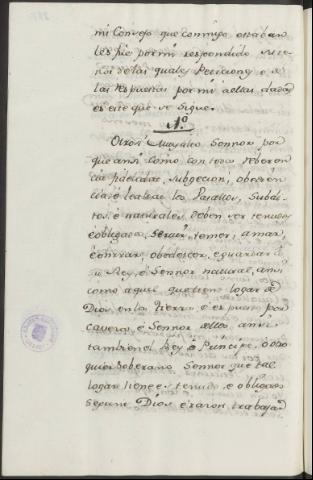 mi Consejo que conmigo estaban
les fue por mi respondido su te
nor de las quales Peticiones e de
las respuestas por mi a ellas dadas
es este que se sigue.
1.º
Otrosi Muy alto Sennor por
que ansi como con toda reberen
cia fidelidad, subgecion, obedien
cia, é lealtad los Vasallos, Subdi-
tos, é naturales deben ser tenudos
é obligados, servir, temer, amar,
é onrrar, obedescer, é guardar á
su Rey, é Sennor natural, ansi
como aquel que tiene logar de
Dios en la tierra é es puesto por
cavesa, é Sennor dellos, ansi
tambien el Rey ó Príncipe, ó otro
qualquier soberano Sennor que tal
logar tiene es tenudo, é obligado
segunt Dios é razon, trabajar